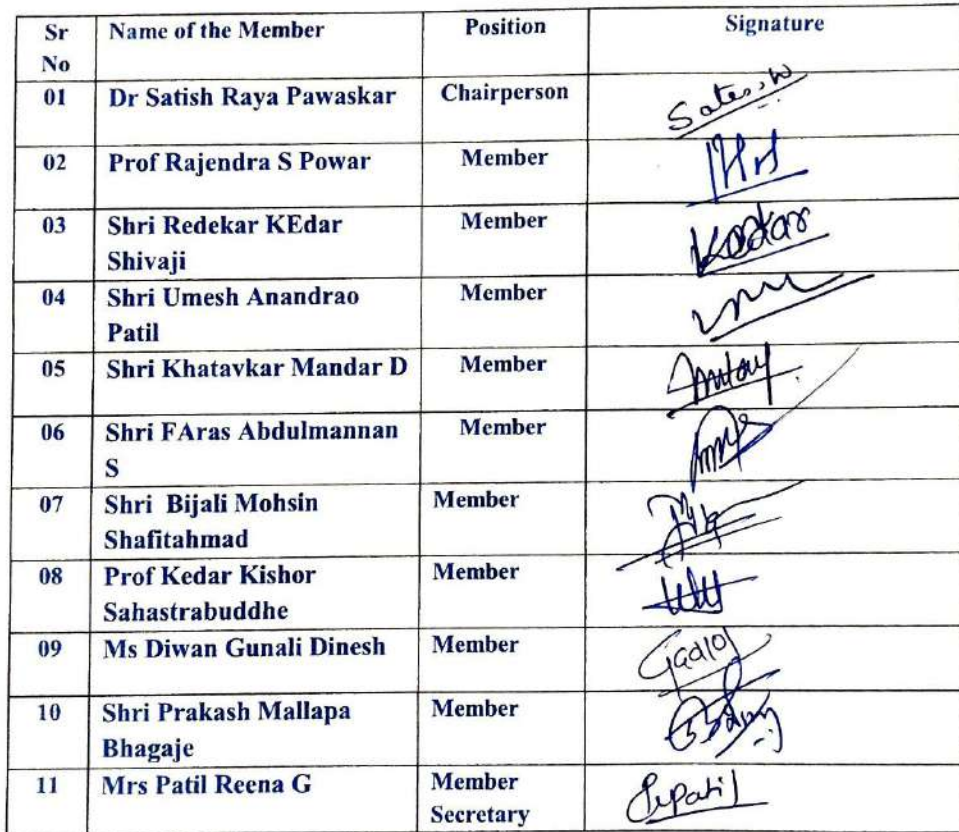 Sr Name of the Member Position Signature
No
01 Dr Satish Raya Pawaskar Chairperson
02 Prof Rajendra S Powar Member
03 Shri Redekar KEdar Member
Shivaji
04 Shri Umesh Anandrao Member
Patil
05 Shri Khatavkar Mandar D Member
06 Shri FAras Abdulmannan Member
S
07 Shri Bijali Mohsin Member
Shafitahmad
08 Prof Kedar Kishor Member
Sahastrabuddhe
09 Ms Diwan Gunali Dinesh Member
10 Shri Prakash Mallapa Member
Bhagaje
11 Mrs Patil Reena G Member
Secretary